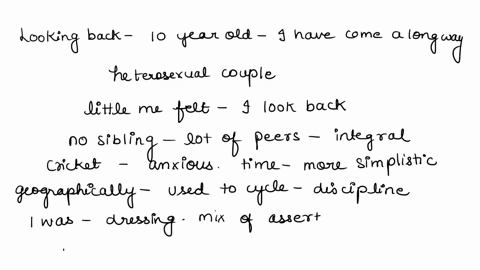 Looking back - 10 year old - I have come a long way
heterosexual couple
little me felt - I look back
no sibling - lot of peers - integral
cricket - anxious. time - more simplistic
geographically - used to cycle - discipline
I was - dressing. mix of assert